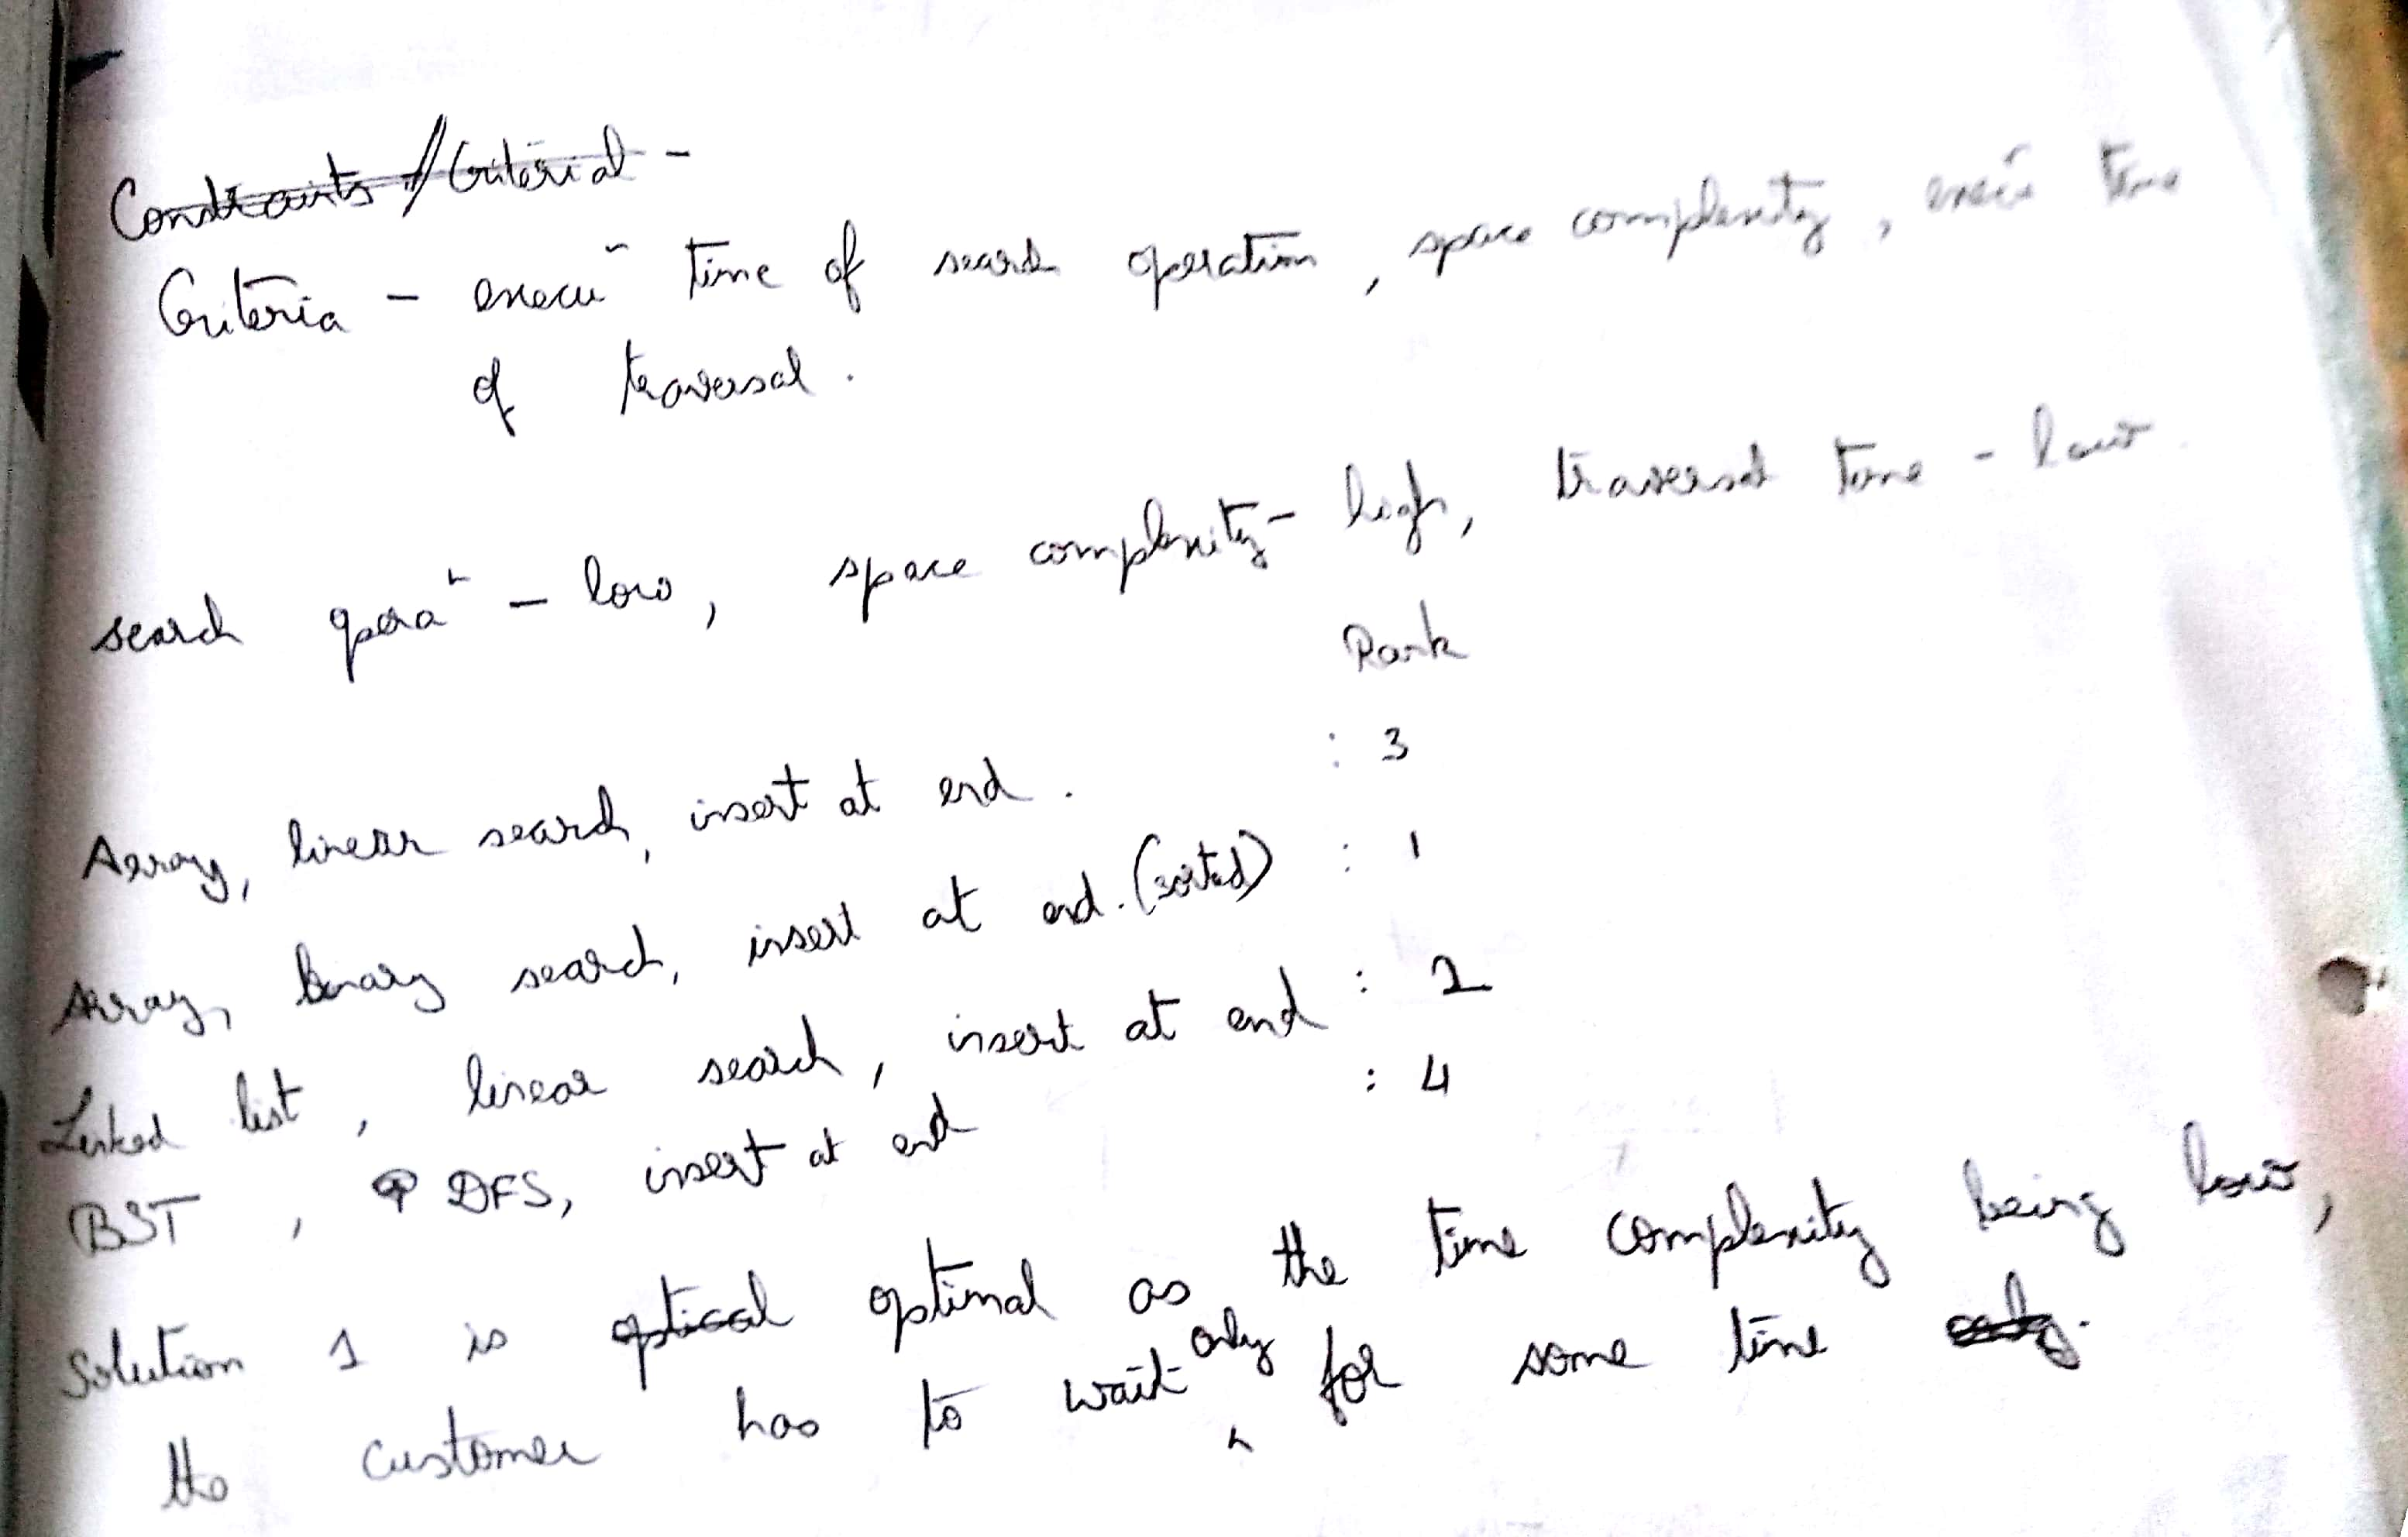 Constraints / Criteria -
Criteria - execuⁿ time of search operation, space complexity, execuⁿ time
of traversal.
search operaⁿ - low, space complexity - high, traversal time - low
Rank
Array, linear search, insert at end. : 3
Array, binary search, insert at end. (sorted) : 1
Linked list, linear search, insert at end : 2
BST, DFS, insert at end : 4
Solution 1 is optical optimal as the time complexity being low,
the customer has to wait only for some time only.